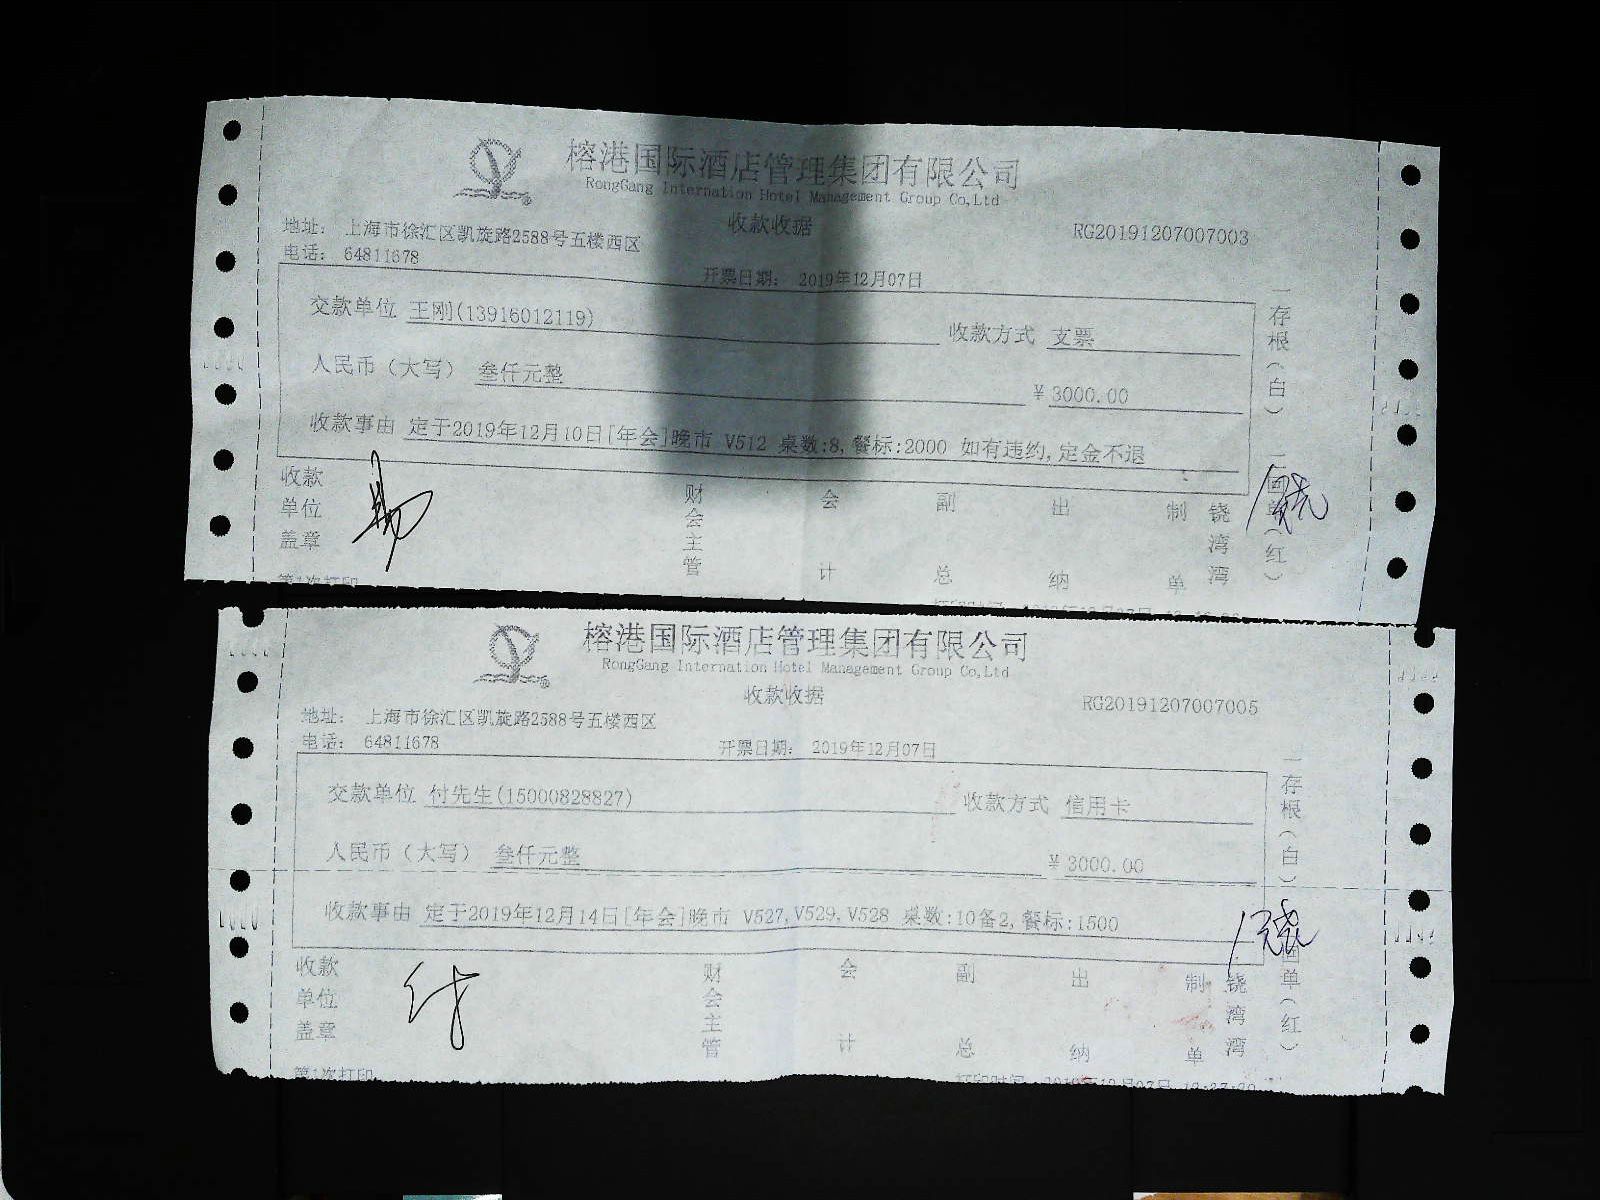 榕港国际酒店管理集团有限公司
RongGang Internation Hotel Management Group Co,Ltd
收款收据
RG20191207007003
地址: 上海市徐汇区凯旋路2588号五楼西区
电话: 64811678
开票日期: 2019年12月07日
交款单位 王刚(13916012119)
收款方式 支票
人民币(大写) 叁仟元整
¥3000.00
收款事由 定于2019年12月10日[年会]晚市 V512 桌数:8,餐标:2000 如有违约,定金不退
一存根(白) 二回单(红)
收款单位盖章
财会主管
会计
副总
出纳
制单
饶湾湾
第1次打印
榕港国际酒店管理集团有限公司
RongGang Internation Hotel Management Group Co,Ltd
收款收据
RG20191207007005
地址: 上海市徐汇区凯旋路2588号五楼西区
电话: 64811678
开票日期: 2019年12月07日
交款单位 付先生(15000828827)
收款方式 信用卡
人民币(大写) 叁仟元整
¥3000.00
收款事由 定于2019年12月14日[年会]晚市 V527,V529,V528 桌数:10备2,餐标:1500
一存根(白) 回单(红)
收款单位盖章
财会主管
会计
副总
出纳
制单
饶湾湾
第1次打印
打印时间: 2019年12月07日